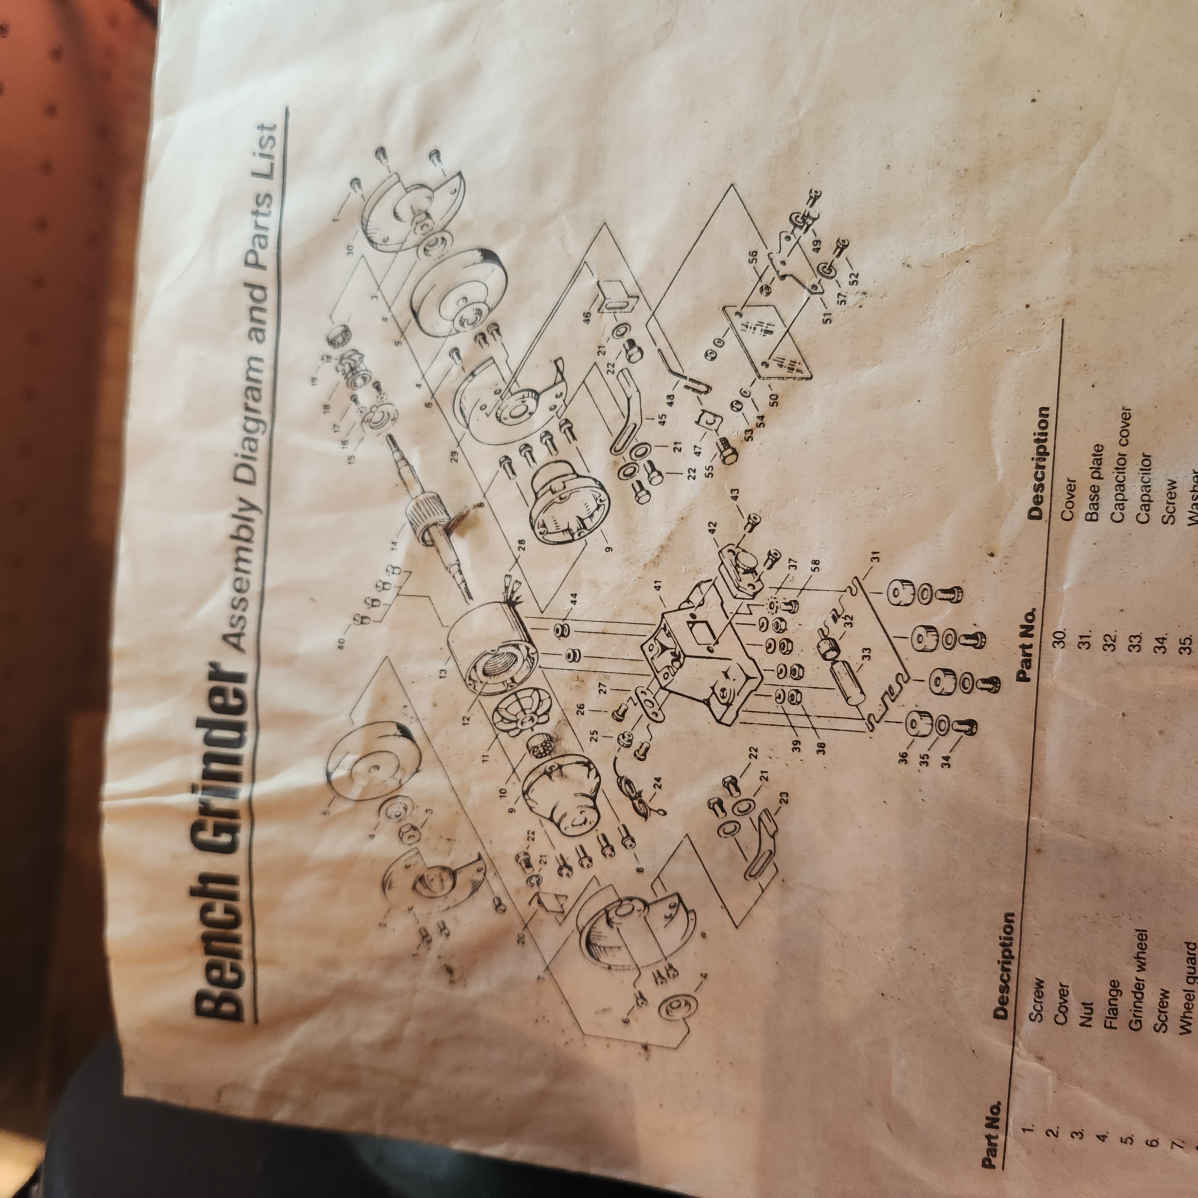 Bench Grinder Assembly Diagram and Parts List
1
30
3
4
5
4
6
19
18
17
16
15
29
14
40
13
12
11
10
9
28
9
44
46
21
22
45
48
47
21
22
55
56
49
52
57
51
50
54
53
43
42
41
37
58
31
32
33
27
26
25
24
39
38
36
35
34
22
21
23
22
21
20
8
7
6
4
5
4
3
2
1
Part No. Description
1. Screw
2. Cover
3. Nut
4. Flange
5. Grinder wheel
6. Screw
7. Wheel guard
Part No. Description
30. Cover
31. Base plate
32. Capacitor cover
33. Capacitor
34. Screw
35. Washer